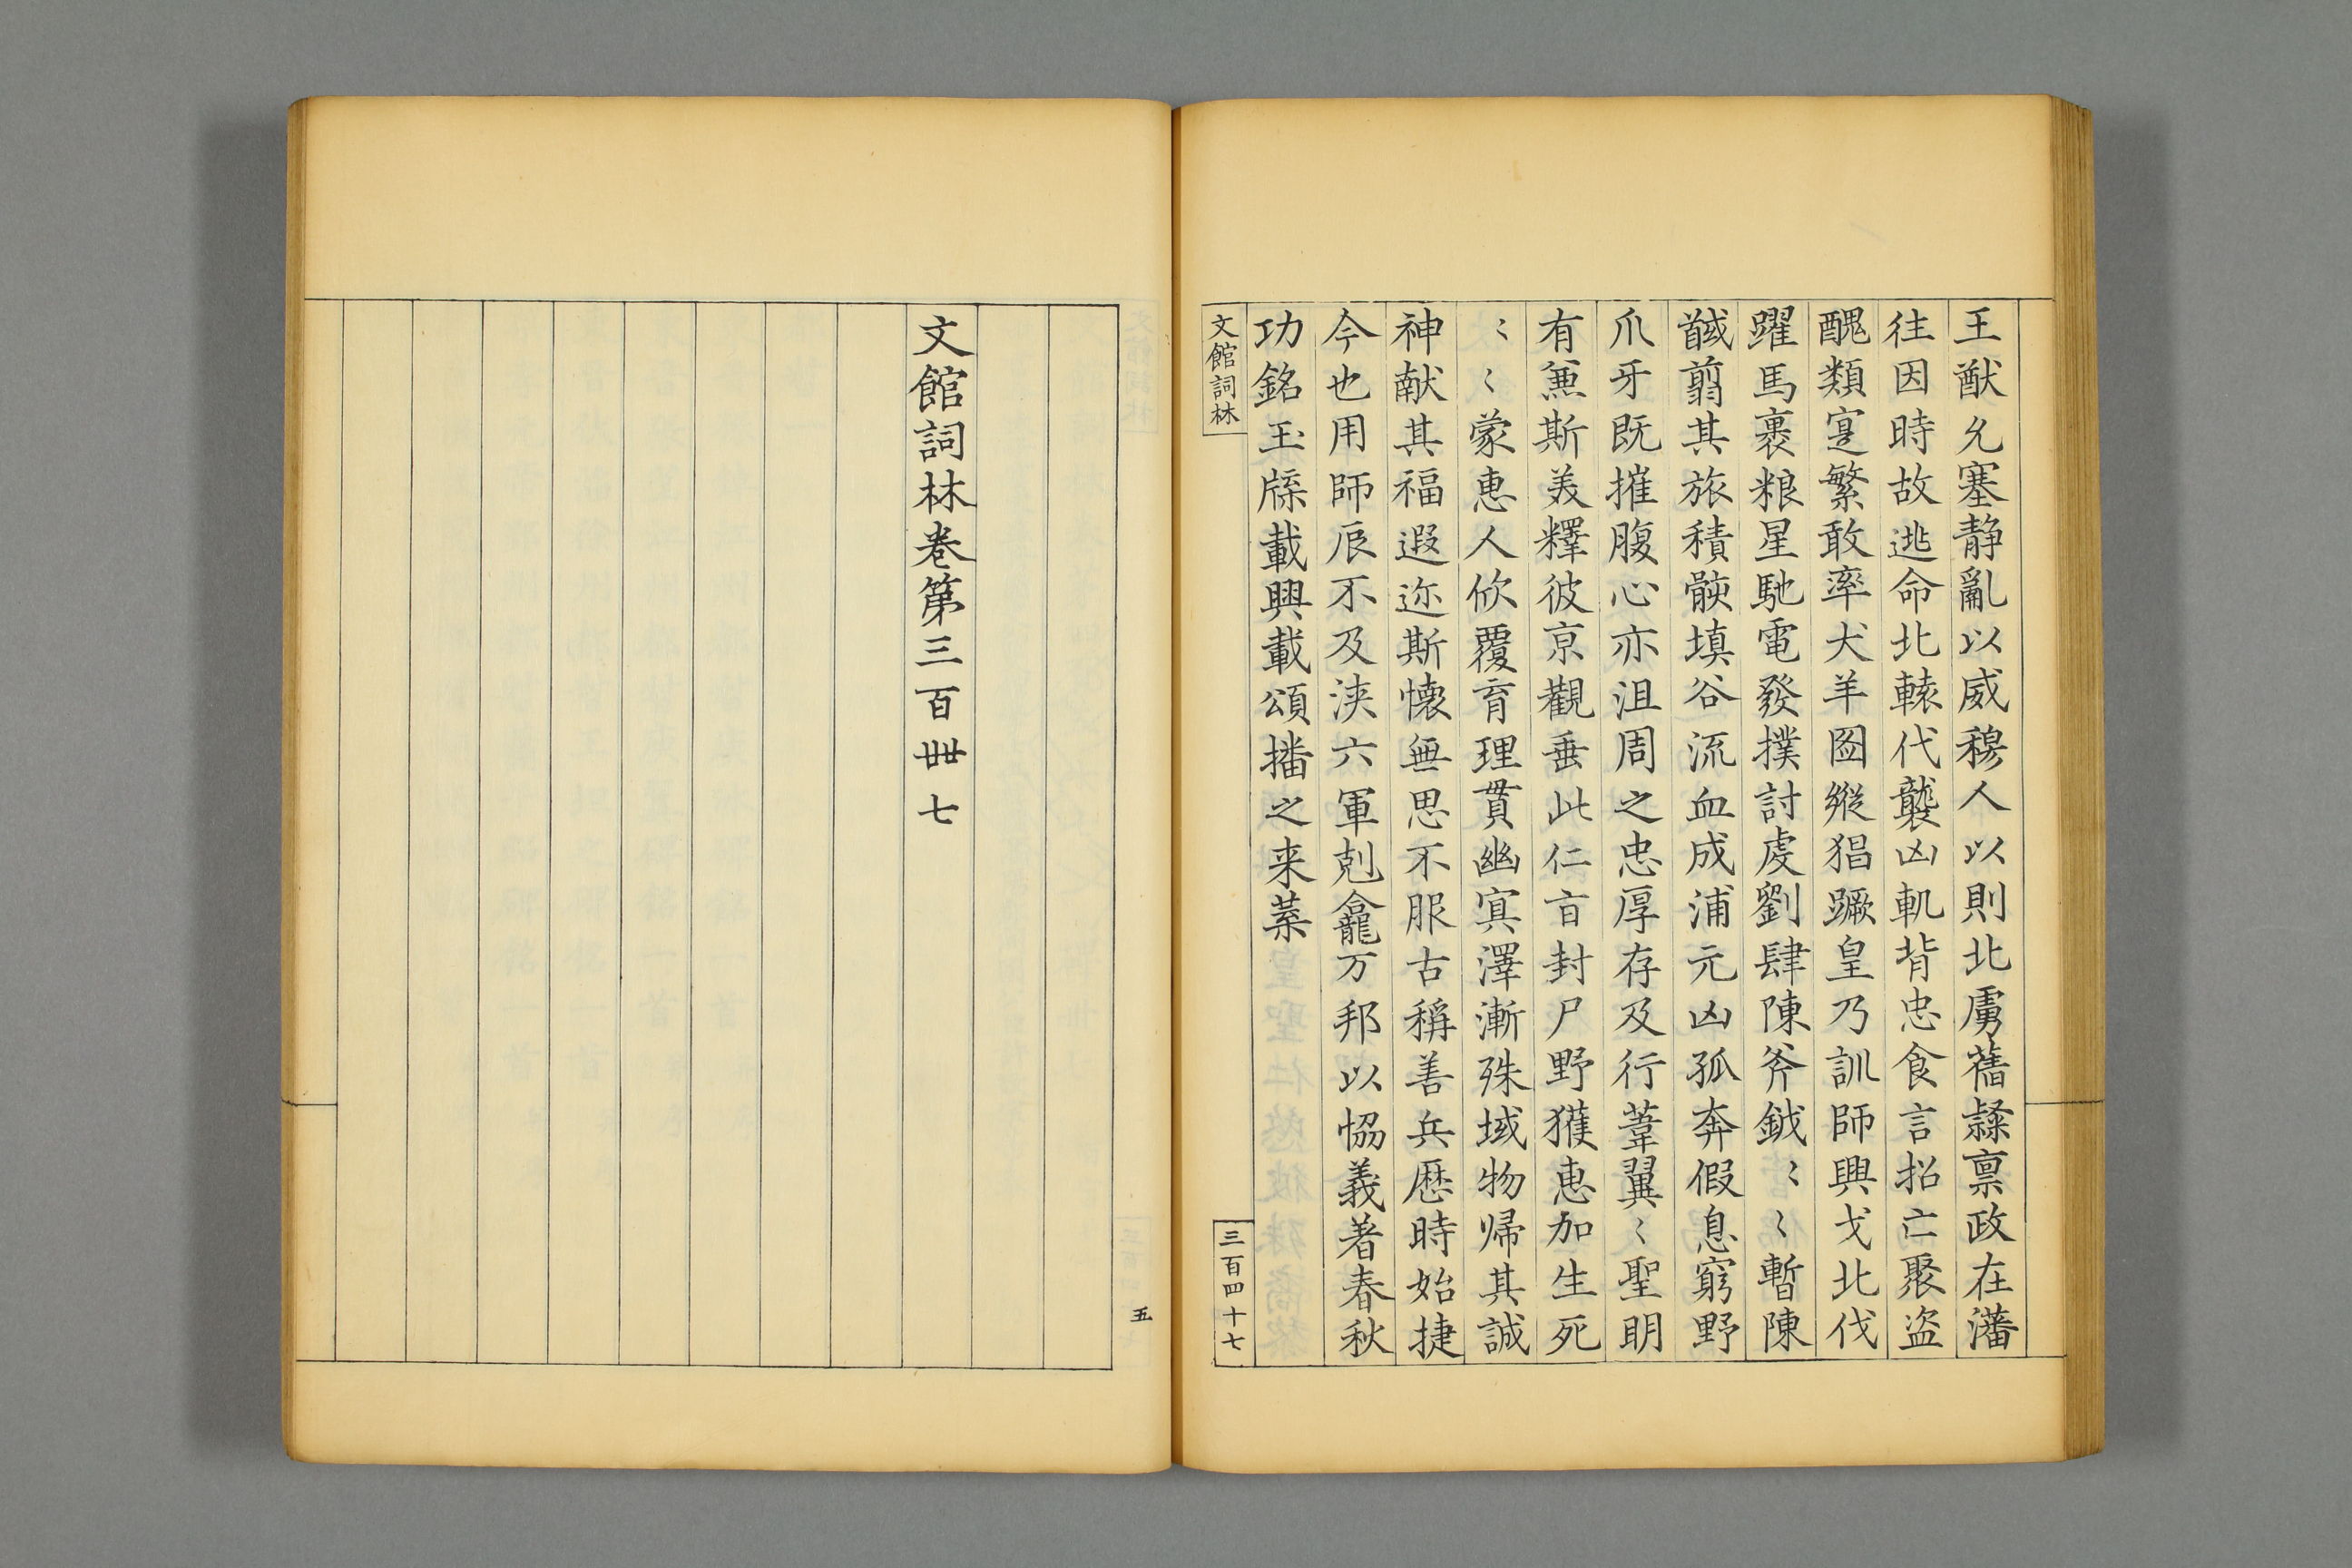 王猷允塞静亂以威穆人以則北虜舊隸禀政在藩
往因時故逃命北轅代襲凶軌背忠食言招亡聚盗
醜類寔繁敢率犬羊图縱猖蹶皇乃訓師興戈北伐
躍馬裹粮星馳電發撲討虔劉肆陳斧鉞〻〻暫陳
馘翦其旅積骸填谷流血成浦元凶孤奔假息窮野
爪牙既摧腹心亦沮周之忠厚存及行葦翼〻聖明
有兼斯美釋彼京觀垂此仁㐭封尸野獲惠加生死
〻〻蒙惠人欣覆育理貫幽冥澤漸殊域物帰其誠
神献其福遐迩斯懐無思不服古稱善兵歷時始捷
今也用師辰不及浹六軍剋龕万邦以恊義著春秋
功銘玉牒載興載頌播之来葉
文館詞林
三百四十七
五
文館詞林卷第三百卌七